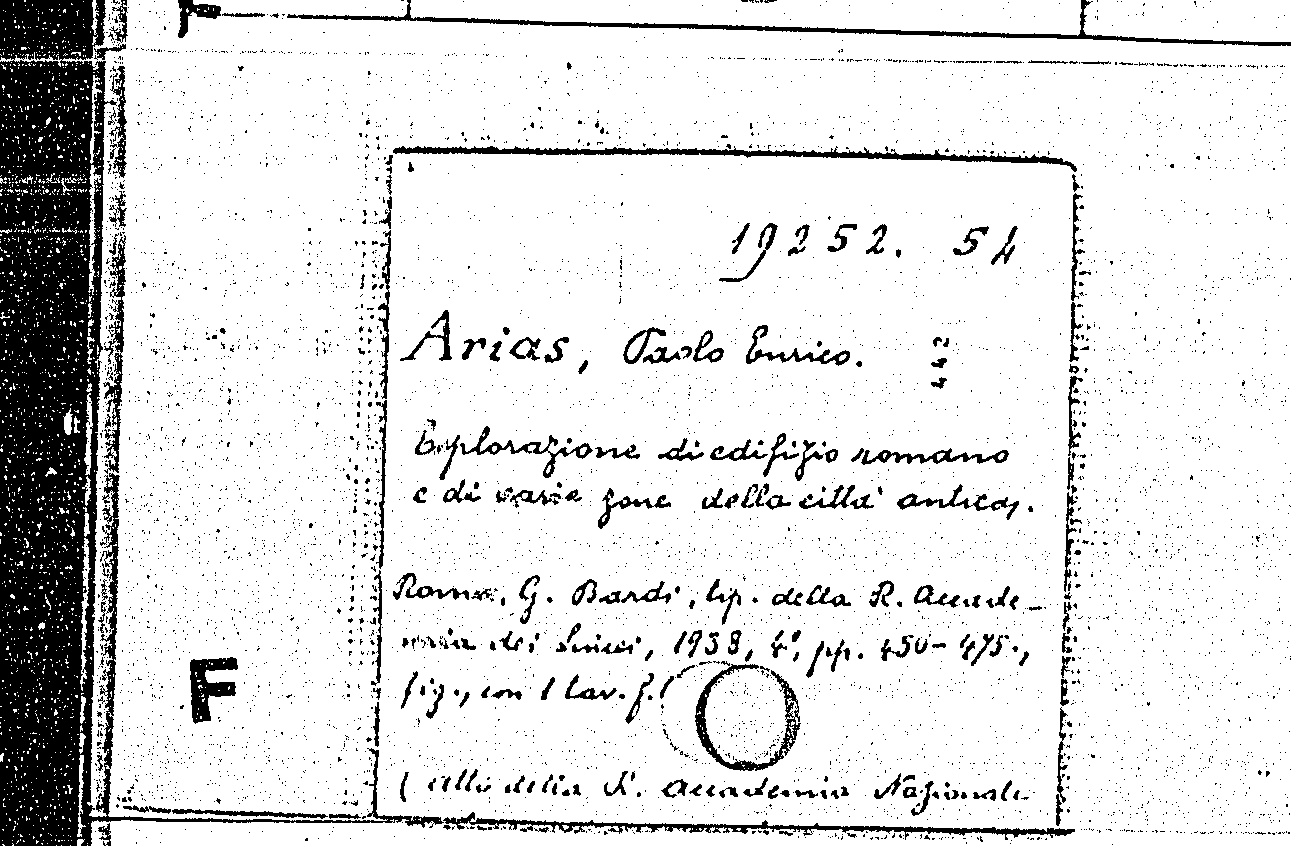 19252. 54
Arias, Paolo Enrico.
442
Esplorazione di edifizio romano
e di varie zone della città antica.
Roma, G. Bardi, tip. della R. Accade-
mia dei Lincei, 1938, 4°, pp. 450-475.,
fig., con 1 tav. f.t
F
( Atti della R. Accademia Nazionale